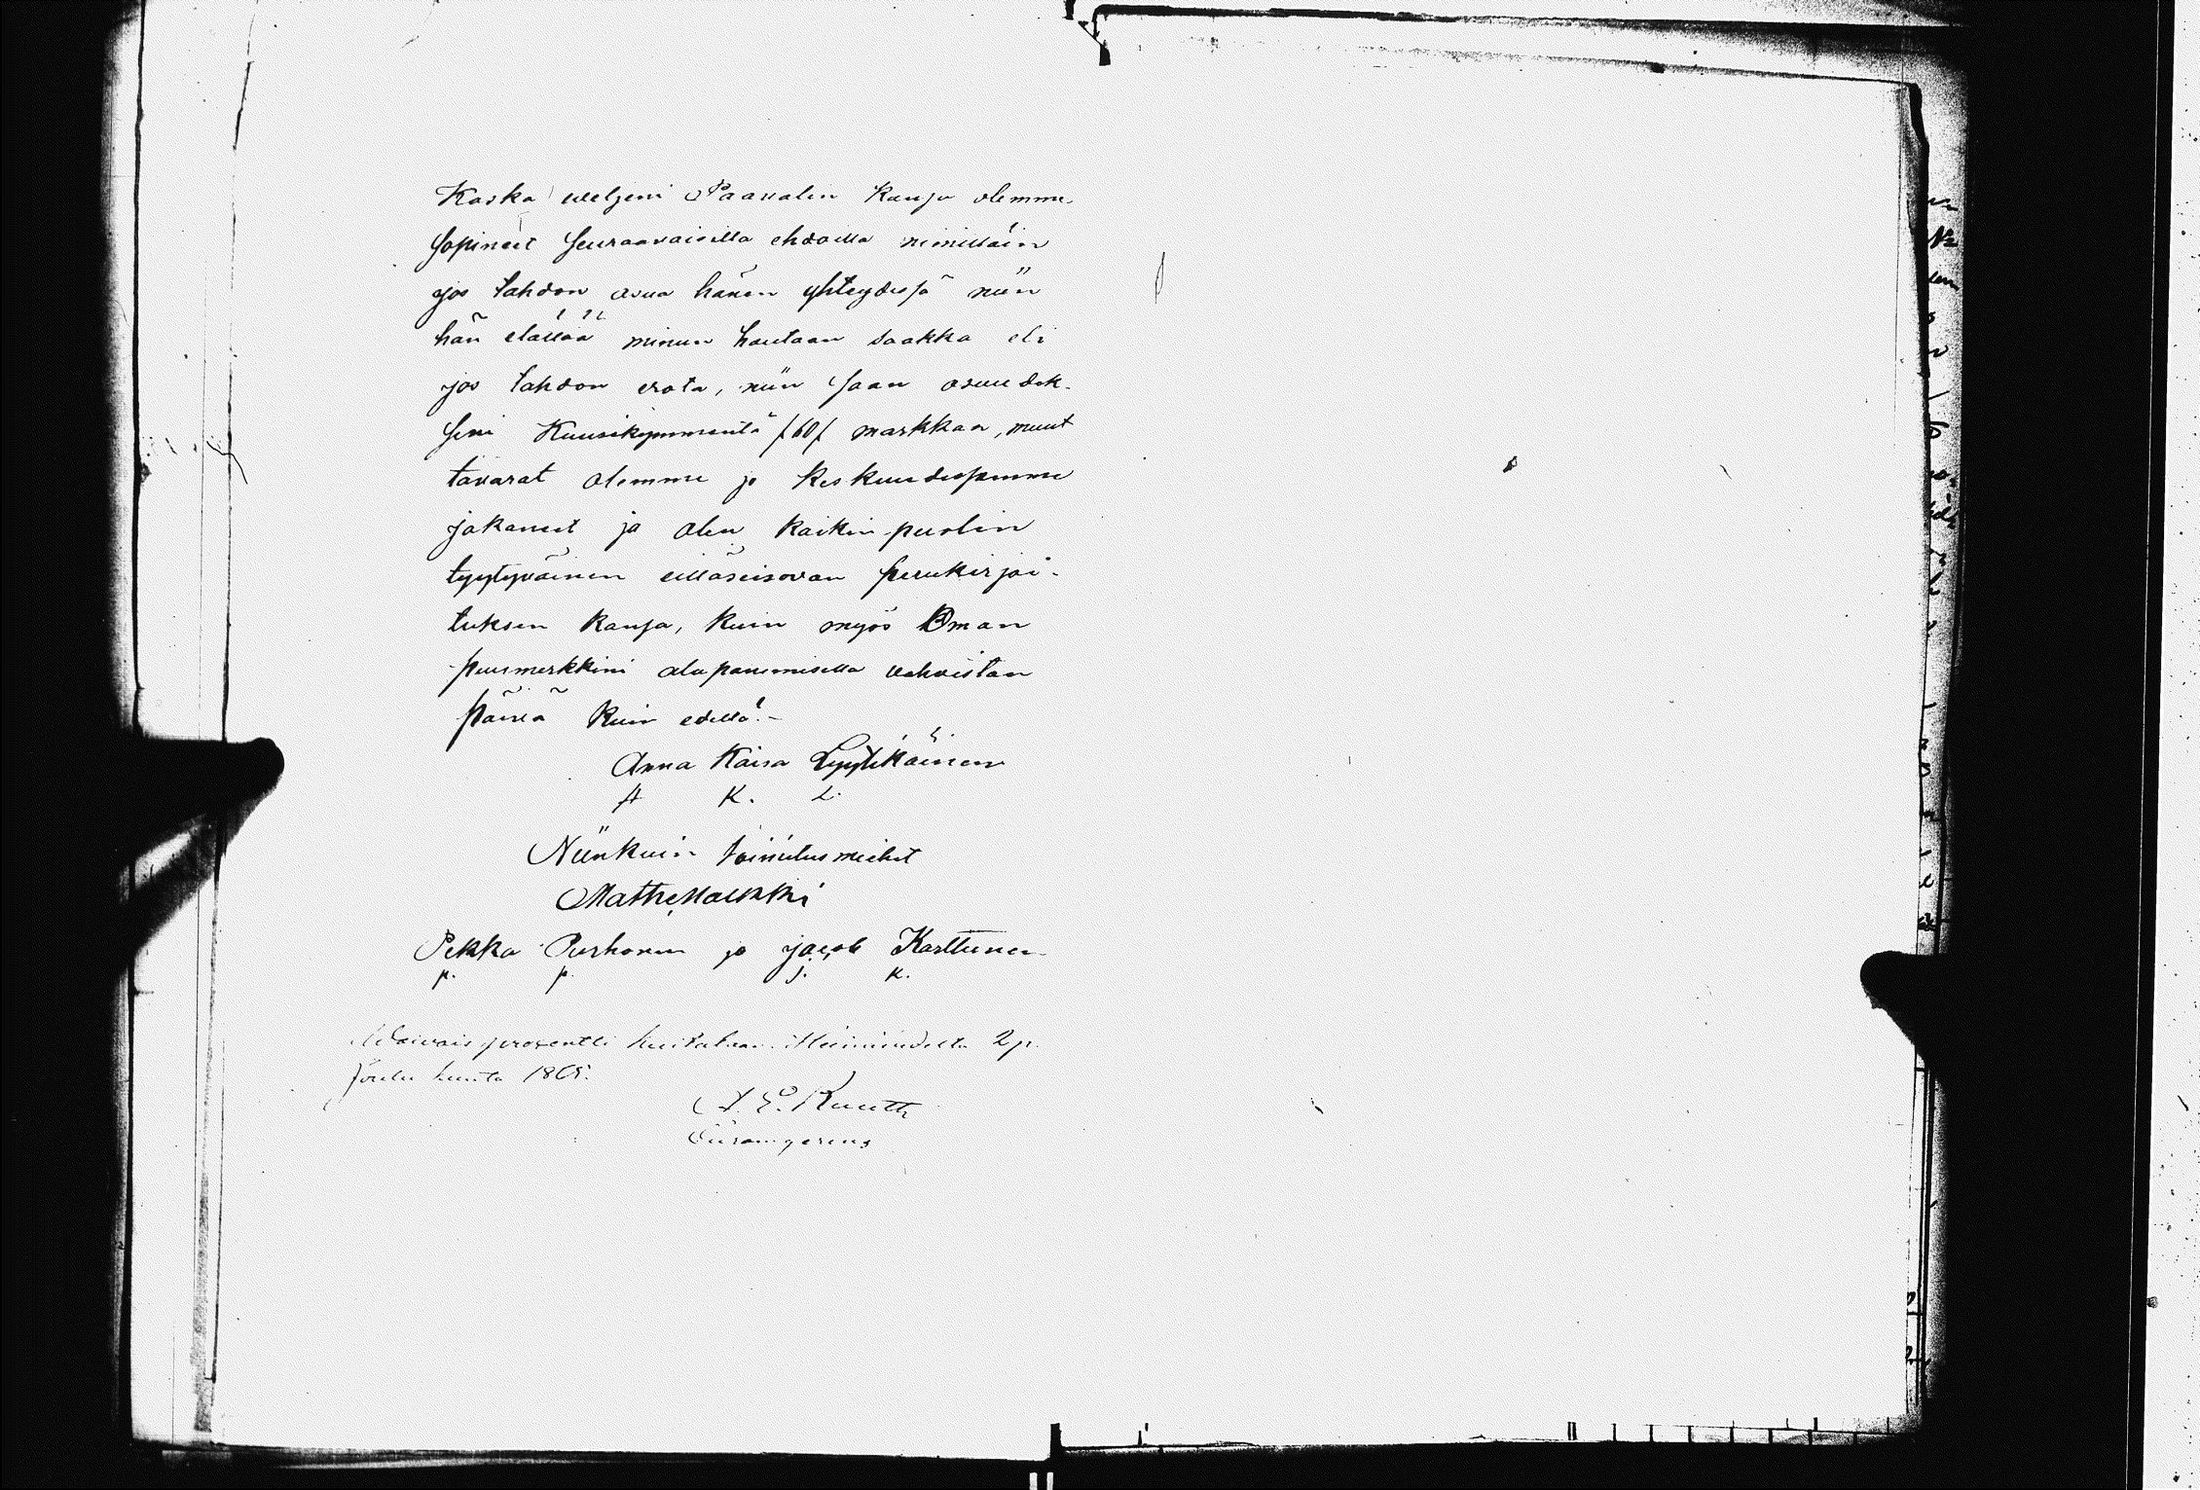 Koska weljeni Paavalin kansa olemme
sopineet seuraavaisella ehdolla nimittäin
jos tahdon asua hänen yhteydesä niin
hän elättää minun hautaan saakka eli
jos tahdon erota, niin saan osuudek-
seni Kuusikymmentä /60/ markkaa, muut
tavarat olemme jo keskuudessamme
jakaneet ja olen kaikin puolin
tyytyväinen eilläseisovan perukirjoi-
tuksen kansa, kuin myös Oman
puumerkkini alapanemisella vahvistan
päivä kuin edellä.-
Anna Kaisa Lyytikäinen
A K. L.
Niinkuin toimitusmiehet
Pekka Purhonen ja jacob Karttunen
p. p. j. K.
Waivais prosentti kuitataan 2 p.
Joulu kuuta